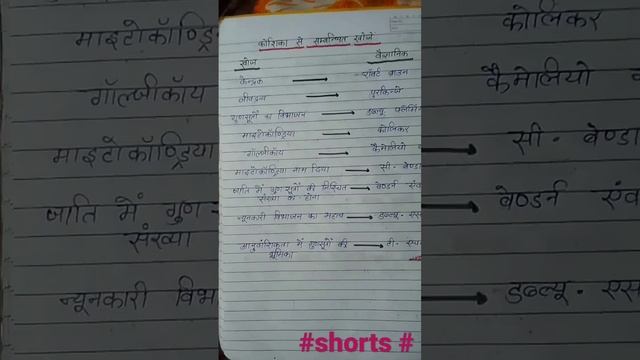 कोशिका से सम्बन्धित खोजें
खोज वैज्ञानिक
केन्द्रक → रॉबर्ट ब्राउन
जीवद्रव्य → पुरकिन्जे
गुणसूत्रों का विभाजन → डब्ल्यू
माइटोकॉण्ड्रिया → कोलिकर
गॉल्जीकॉय → कैमेलियो
माइटोकॉण्ड्रिया नाम दिया → सी - वेण्डा
जाति में गुणसूत्रों की निश्चित → वेण्डर्न एंव
संख्या का होना
न्यूनकारी विभाजन का महत्व → डब्ल्यू - एस
आनुवंशिकता में गुणसूत्रों की → टी -
भूमिका
#shorts #
माइटोकॉण्ड्रि
गॉल्जीकॉय
माइटोकॉण्ड्रिया
जाति में गुण
संख्या
न्यूनकारी विभ
कोलिकर
कैमेलियो
सी - वेण्डा
वेण्डर्न एंव
डब्ल्यू - एस